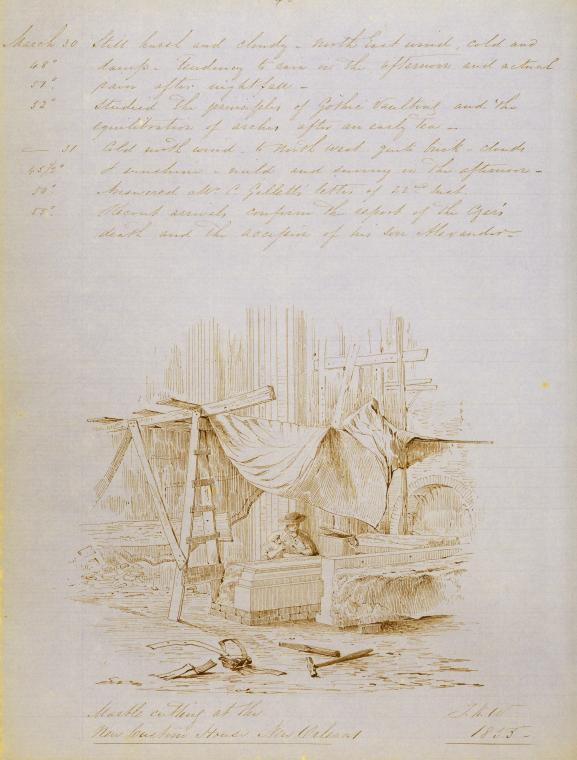 March 30 Still harsh and cloudy - North East wind, cold and
48° damp - tendency to rain in the afternoon and actual
51° rain after nightfall -
52° Studied the principles of Gothic Vaulting and the
equilibration of arches after an early tea -
— 31 Cold north wind - to North West quite brisk - clouds
45 1/2° & sunshine - mild and sunny in the afternoon -
50° Answered Mr C Gillett's letter of 22nd Inst
55° Recent arrivals confirm the report of the Czar's
death and the accession of his son Alexander -
Marble cutting at the
New Custom House New Orleans
T. K. W
1855 -